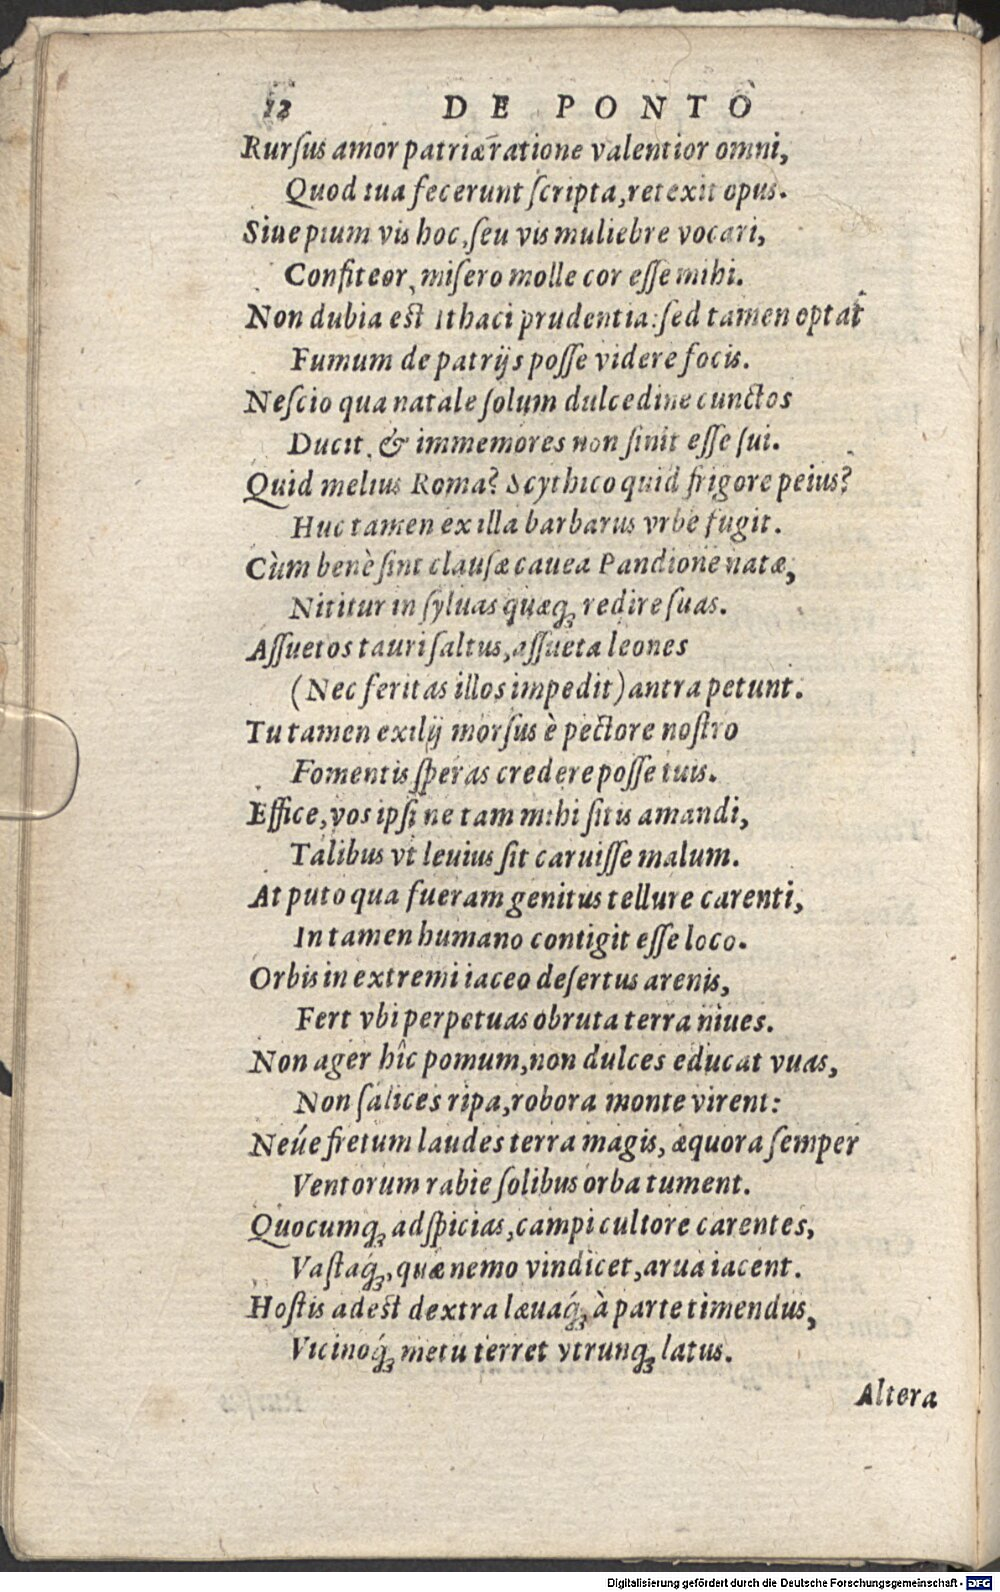 12 DE PONTO
Rurſus amor patriæ ratione valentior omni,
Quod tua fecerunt ſcripta, retexit opus.
Siue pium vis hoc, ſeu vis muliebre vocari,
Confiteor, miſero molle cor eſſe mihi.
Non dubia est Ithaci prudentia: ſed tamen optat
Fumum de patrijs poſſe videre focis.
Neſcio qua natale ſolum dulcedine cunctos
Ducit, & immemores non ſinit eſſe ſui.
Quid melius Roma? Scythico quid frigore peius?
Huc tamen ex illa barbarus vrbe fugit.
Cùm benè ſint clauſæ cauea Pandione natæ,
Nititur in ſyluas quæq; redire ſuas.
Aſſuetos tauri ſaltus, aſſueta leones
(Nec feritas illos impedit) antra petunt.
Tu tamen exilij morſus è pectore noſtro
Fomentis ſperas credere poſſe tuis.
Effice, vos ipſi ne tam mihi ſitis amandi,
Talibus vt leuius ſit caruiſſe malum.
At puto qua fueram genitus tellure carenti,
In tamen humano contigit eſſe loco.
Orbis in extremi iaceo deſertus arenis,
Fert vbi perpetuas obruta terra niues.
Non ager hîc pomum, non dulces educat vuas,
Non ſalices ripa, robora monte virent:
Neúe fretum laudes terra magis, æquora ſemper
Ventorum rabie ſolibus orba tument.
Quocumq; adſpicias, campi cultore carentes,
Vaſtaq́;, quæ nemo vindicet, arua iacent.
Hoſtis adest dextra læuaq́; à parte timendus,
Vicinoq́; metu terret vtrunq; latus.
Altera
Digitalisierung gefördert durch die Deutsche Forschungsgemeinschaft - DFG